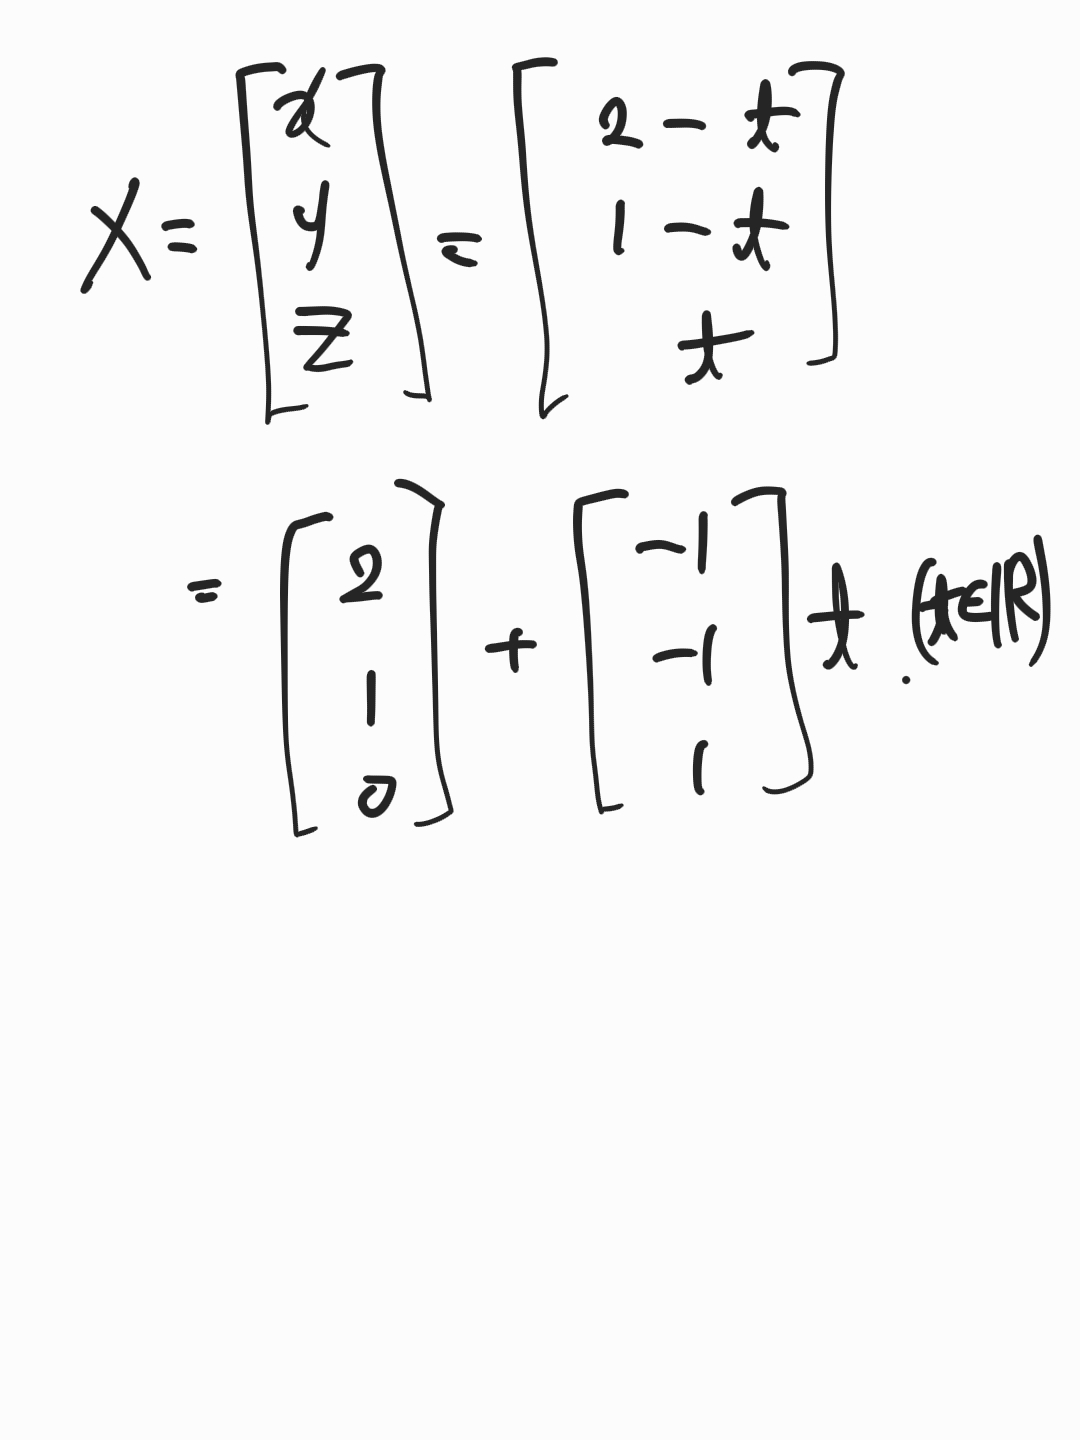 X = [x y z] = [2 - t 1 - t t]
= [2 1 0] + [-1 -1 1] t (t ∈ ℝ).